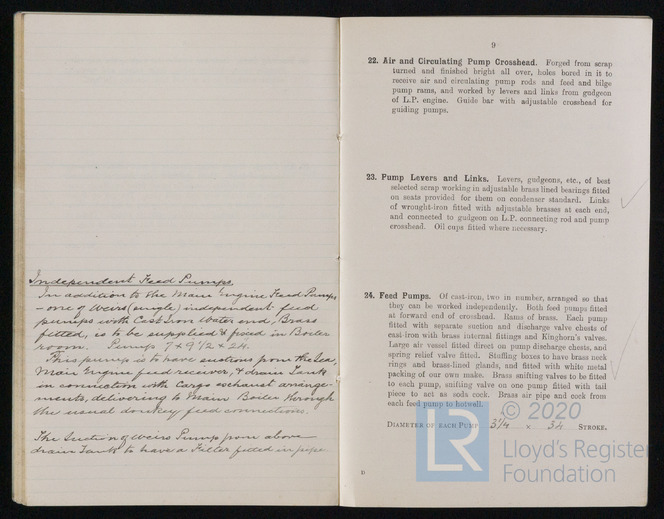 Independent Feed Pumps.
In addition to the Main Engine Feed Pumps
- one of Weirs (single) independent feed
pumps with Cast Iron Water end, Brass
fitted, is to be supplied & fixed in Boiler
room. Pumps 7 & 9 1/2 & 24.
This pump is to have suctions from the Sea,
Main Engine feed receiver, & drain Tank
in connection with Cargo exhaust arrange-
ments, delivering to Main Boiler through
the usual donkey feed connections.
The Suction of Weirs Pump from above
drain Tank to have a Filter fitted in pipe.
9
22. Air and Circulating Pump Crosshead. Forged from scrap
turned and finished bright all over, holes bored in it to
receive air and circulating pump rods and feed and bilge
pump rams, and worked by levers and links from gudgeon
of L.P. engine. Guide bar with adjustable crosshead for
guiding pumps.
23. Pump Levers and Links. Levers, gudgeons, etc., of best
selected scrap working in adjustable brass lined bearings fitted
on seats provided for them on condenser standard. Links
of wrought-iron fitted with adjustable brasses at each end,
and connected to gudgeon on L.P. connecting rod and pump
crosshead. Oil cups fitted where necessary.
24. Feed Pumps. Of cast-iron, two in number, arranged so that
they can be worked independently. Both feed pumps fitted
at forward end of crosshead. Rams of brass. Each pump
fitted with separate suction and discharge valve chests of
cast-iron with brass internal fittings and Kinghorn's valves.
Large air vessel fitted direct on pump discharge chests, and
spring relief valve fitted. Stuffing boxes to have brass neck
rings and brass-lined glands, and fitted with white metal
packing of our own make. Brass snifting valves to be fitted
to each pump, snifting valve on one pump fitted with tail
piece to act as soda cock. Brass air pipe and cock from
each feed pump to hotwell.
DIAMETER OF EACH PUMP 3 1/4 × 34 STROKE.
D
LR
© 2020
Lloyd's Register
Foundation